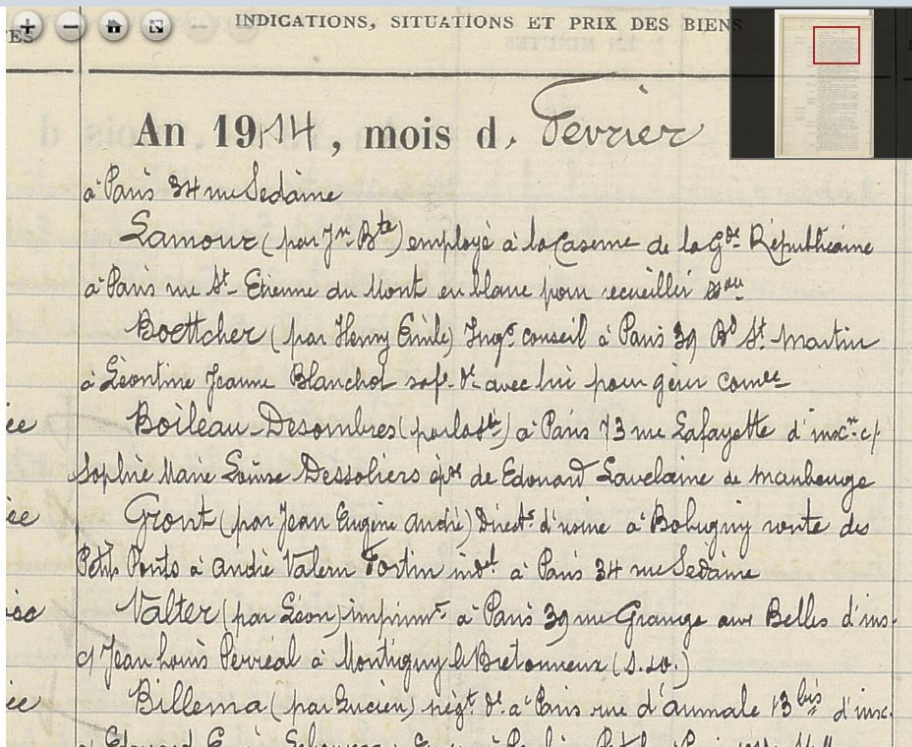 INDICATIONS, SITUATIONS ET PRIX DES BIENS
An 1914, mois d. Février
à Paris 34 rue Sedaine
Lamour (par Jn Bte) employé à la Caserne de la Gde Républicaine
à Paris rue St-Etienne du Mont en blanc pour recueillir son
Boettcher (par Henry Emile) Ingr conseil à Paris 39 Bd St Martin
à Léontine Jeanne Blanchot sa fe dt avec lui pour gérer
Boileau-Desombres (par la sté) à Paris 73 rue Lafayette d'inscon c/
Sophie Marie Louise Dessoliers épse de Edouard Lavelaine de maubeuge
ée Gront (par Jean Eugène André) Directr d'usine à Bobigny route des
Petits Ponts à André Valern Fortin indel à Paris 34 rue Sedaine
Valter (par Léon) imprimr à Paris 39 rue Grange aux Belles d'ins-
c/ Jean Louis Perréal à Montigny le Bretonneux (S.&O.)
ée Billema (par Lucien) négt dt à Paris rue d'aumale 13 bis d'insc.